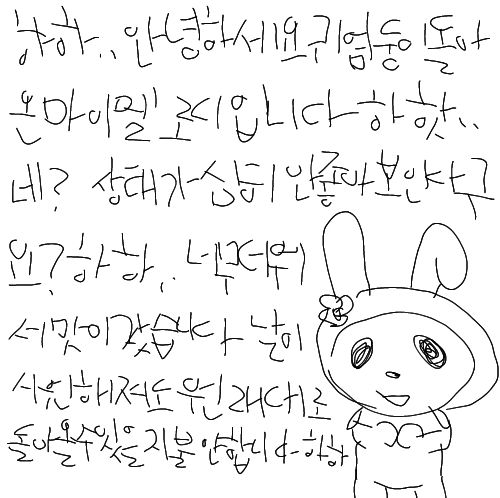 하하.. 안녕하세요 귀염둥이돌아
온마이멜로디입니다 하핫..
네? 상태가심히 안좋아보인다구
요? 하하.. 너무더워
서맛이갔습니다 날이
시원해져도 원래대로
돌아올수있을지불안합니다 하하